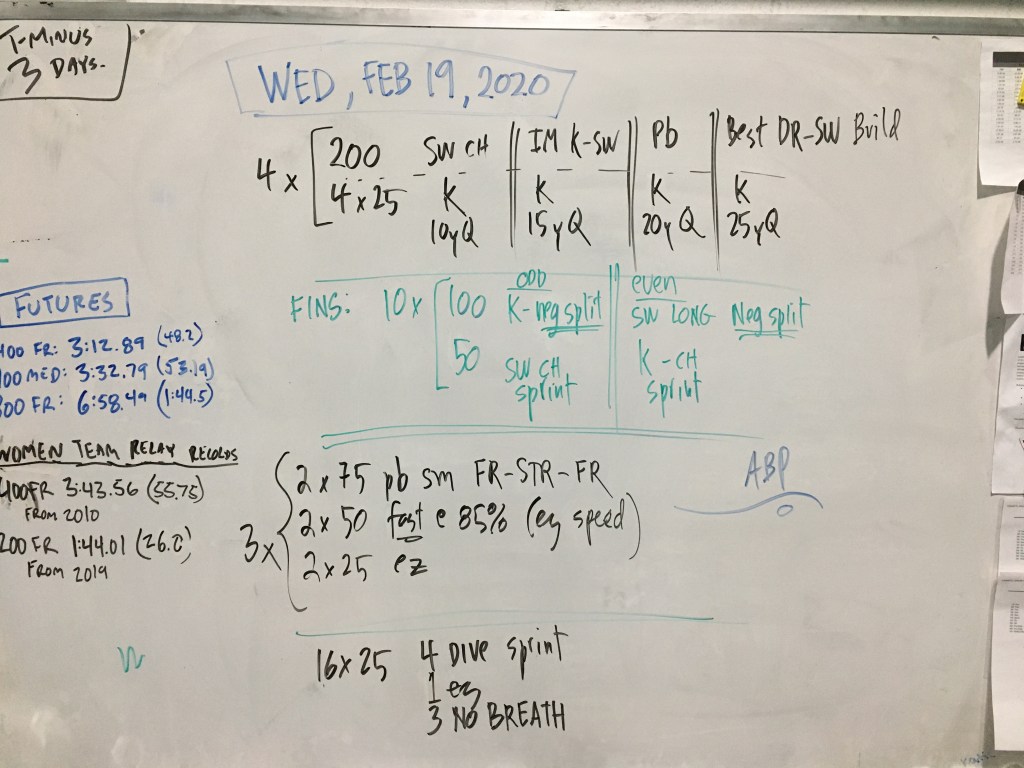 T-MINUS
3 DAYS.
WED, FEB 19, 2020
4 x [ 200 SW CH || IM K-SW || Pb || Best DR-SW Build
4 x 25 K || K || K || K
10yQ || 15yQ || 20yQ || 25yQ
FINS: 10 x [ 100 ODD K-neg split || even SW LONG Neg split
50 SW CH sprint || K-CH sprint
FUTURES
400 FR: 3:12.89 (48.2)
400 MED: 3:32.79 (53.19)
800 FR: 6:58.49 (1:44.5)
WOMEN TEAM RELAY RECORDS
400 FR 3:43.56 (55.75)
FROM 2010
200 FR 1:44.01 (26.0)
FROM 2019
3 x { 2 x 75 pb sm FR-STR-FR
2 x 50 fast e 85% (ez speed)
2 x 25 ez
ABP
16 x 25 4 DIVE sprint
1 ez
3 NO BREATH